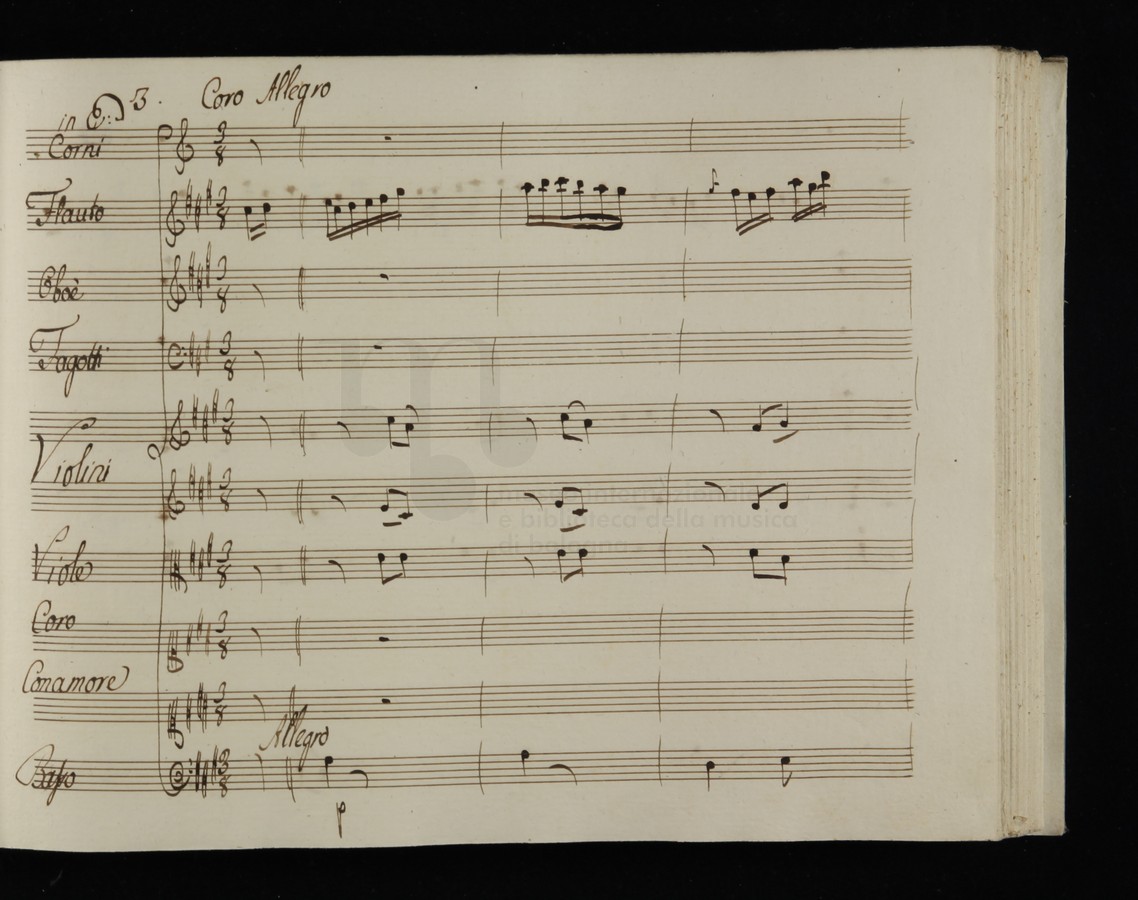 3. Coro Allegro
Corni
Flauto
Oboè
Fagotti
Violini
Viole
Coro
Conamore
Allegro
Basso
p
museo internazionale
e biblioteca della musica
di bologna